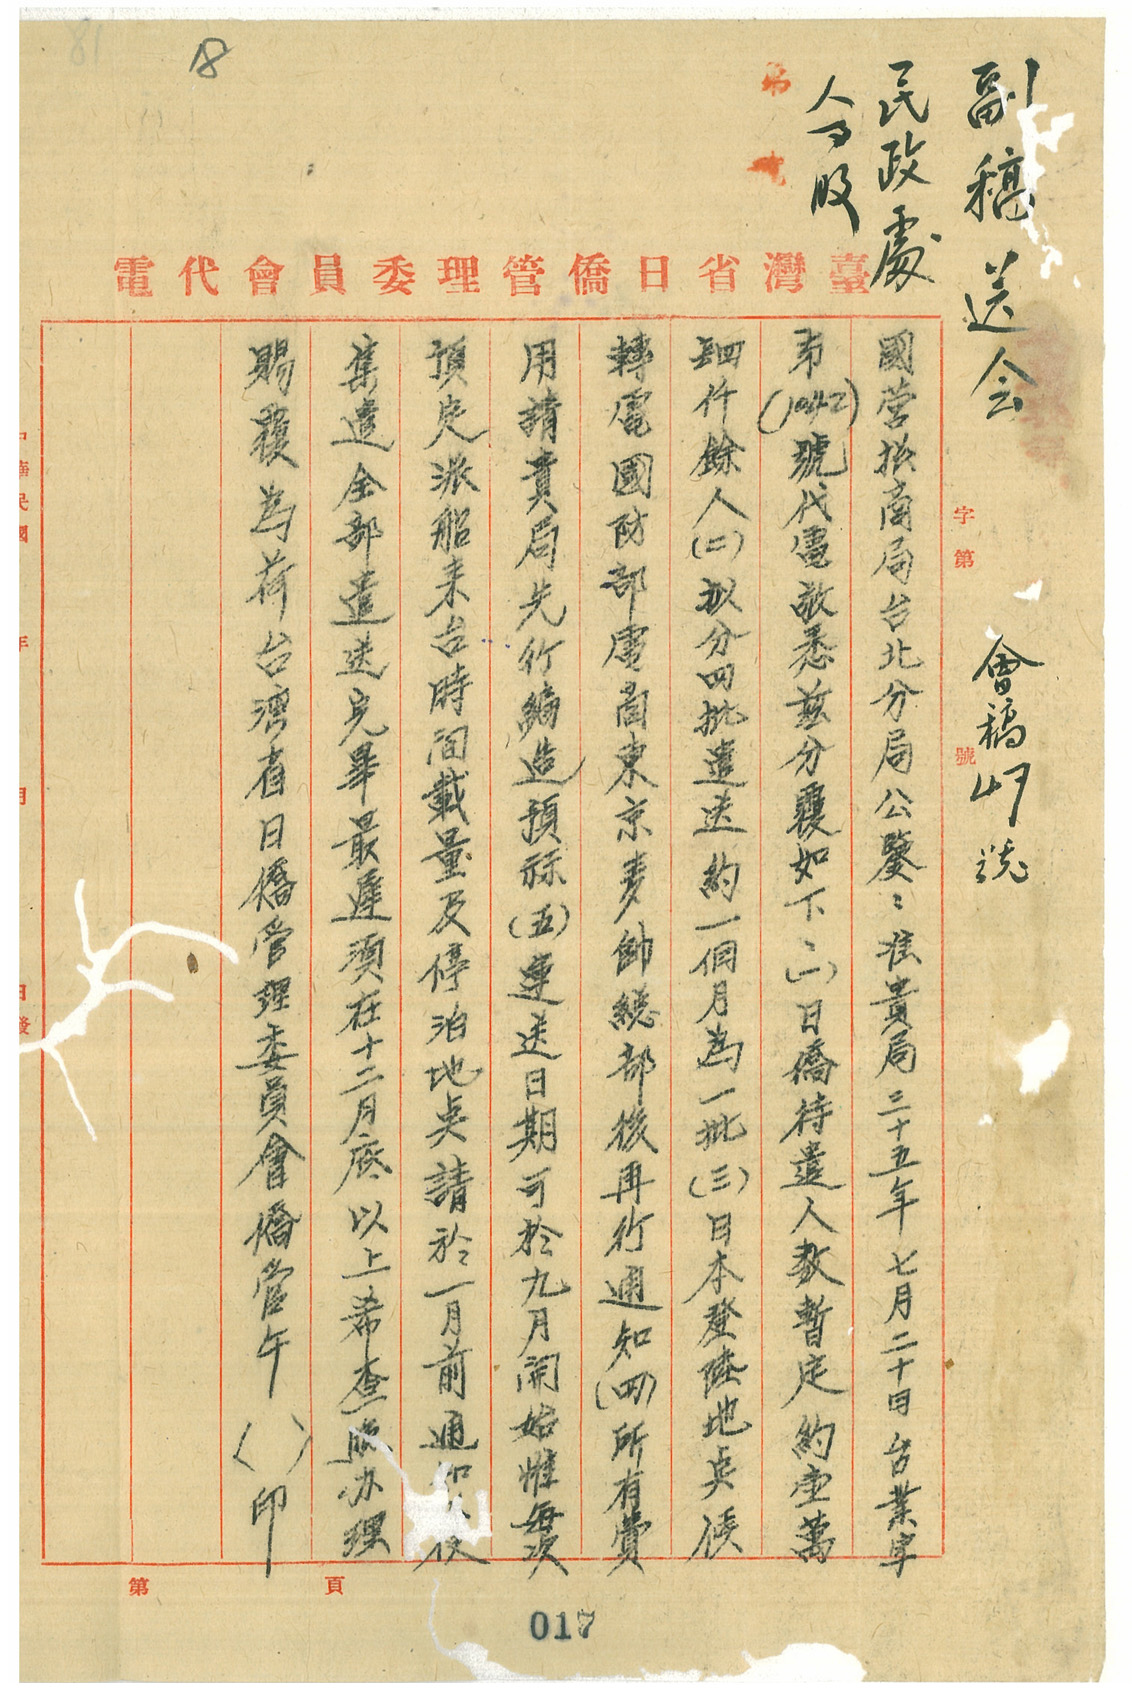 副稿送会
會稿 号
民政處
人事股
臺灣省日僑管理委員會代電
字第 號
國営招商局台北分局公鑒：准貴局三十五年七月二十日台業字
第(1042)號代電敬悉茲分覆如下：(一)日僑待遣人数暫定約壹萬
肆仟餘人(二)拟分四批遣送約一個月為一批(三)日本登陸地点候
轉電國防部電商東京麦帥總部後再行通知(四)所有費
用請貴局先行編造預祘(五)運送日期可於九月開始惟每次
預定派船来台時间載量及停泊地点請於一月前通知
集遣全部遣送完畢最遲須在十二月底以上希查照办理
賜覆為荷台灣省日僑管理委員會僑管午( )印
中華民國 年 月 日發
第 頁
017
18